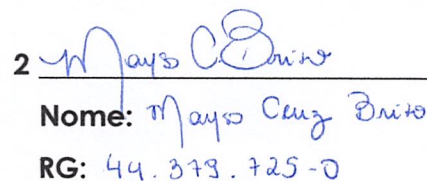 2 Mayso C. Brito
Nome: Mayso Cruz Brito
RG: 44.379.725-0